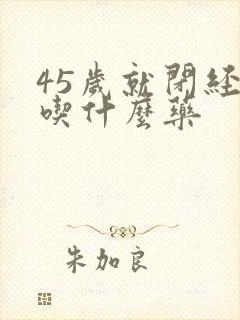 45歲就閉経
喫什麼藥
朱加良